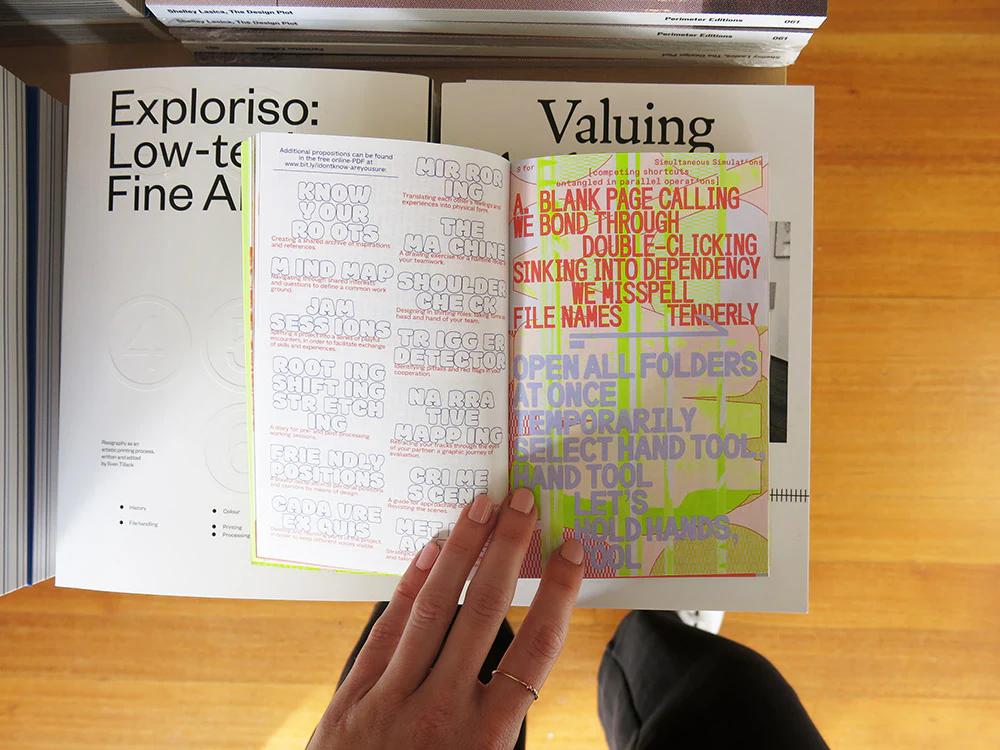 Shelley Lasica, The Design Plot
Perimeter Editions
061
Shelley Lasica, The Design Plot
Perimeter Editions
061
Perimeter Editions
Shelley Lasica, The Design Plot
061
Exploriso:
Low-te
Fine A
Risography as an
artistic printing process,
written and edited
by Sven Tillack
History
File handling
Colour
Printing
Processing
Valuing
Additional propositions can be found
in the free online-PDF at
www.bit.ly/idontknow-areyousure:
KNOW
YOUR
RO OTS
Creating a shared archive of inspirations
and references.
M IND MAP
Navigating through shared interests
and questions to define a common work
ground.
JAM
SESS IONS
Splitting a project into a series of playful
encounters, in order to facilitate exchange
of skills and experiences.
ROOT ING
SHIFT ING
STR ETCH
ING
A diary for pre- and post-processing
working sessions.
FRIE NDLY
POSITIONS
positions
and opinions by means of design.
CADA VRE
EX QUIS
parts of the project,
in order to keep different voices visible.
MIR ROR
ING
Translating each other's feelings and
experiences into physical form.
THE
MA CHINE
A drawing exercise for
your teamwork.
SHOULDER
CHE CK
Designing in shifting roles: taking turns as
head and hand of your team.
TR IGG ER
DETECTOR
Identifying pitfalls and red flags in your
cooperation.
NA RRA
TIVE
MAPP ING
Retracing your tracks through the eyes
of your partner: a graphic journey of
evaluation.
CRI ME
SCENE
A guide for approaching
Revisiting the scenes.
s for
Simultaneous Simulations
[competing shortcuts
entangled in parallel operations]
A. BLANK PAGE CALLING
WE BOND THROUGH
DOUBLE-CLICKING
SINKING INTO DEPENDENCY
WE MISSPELL
FILE NAMES TENDERLY
OPEN ALL FOLDERS
AT ONCE
TEMPORARILY
SELECT HAND TOOL,
HAND TOOL
LET'S
HOLD HANDS,
TOOL